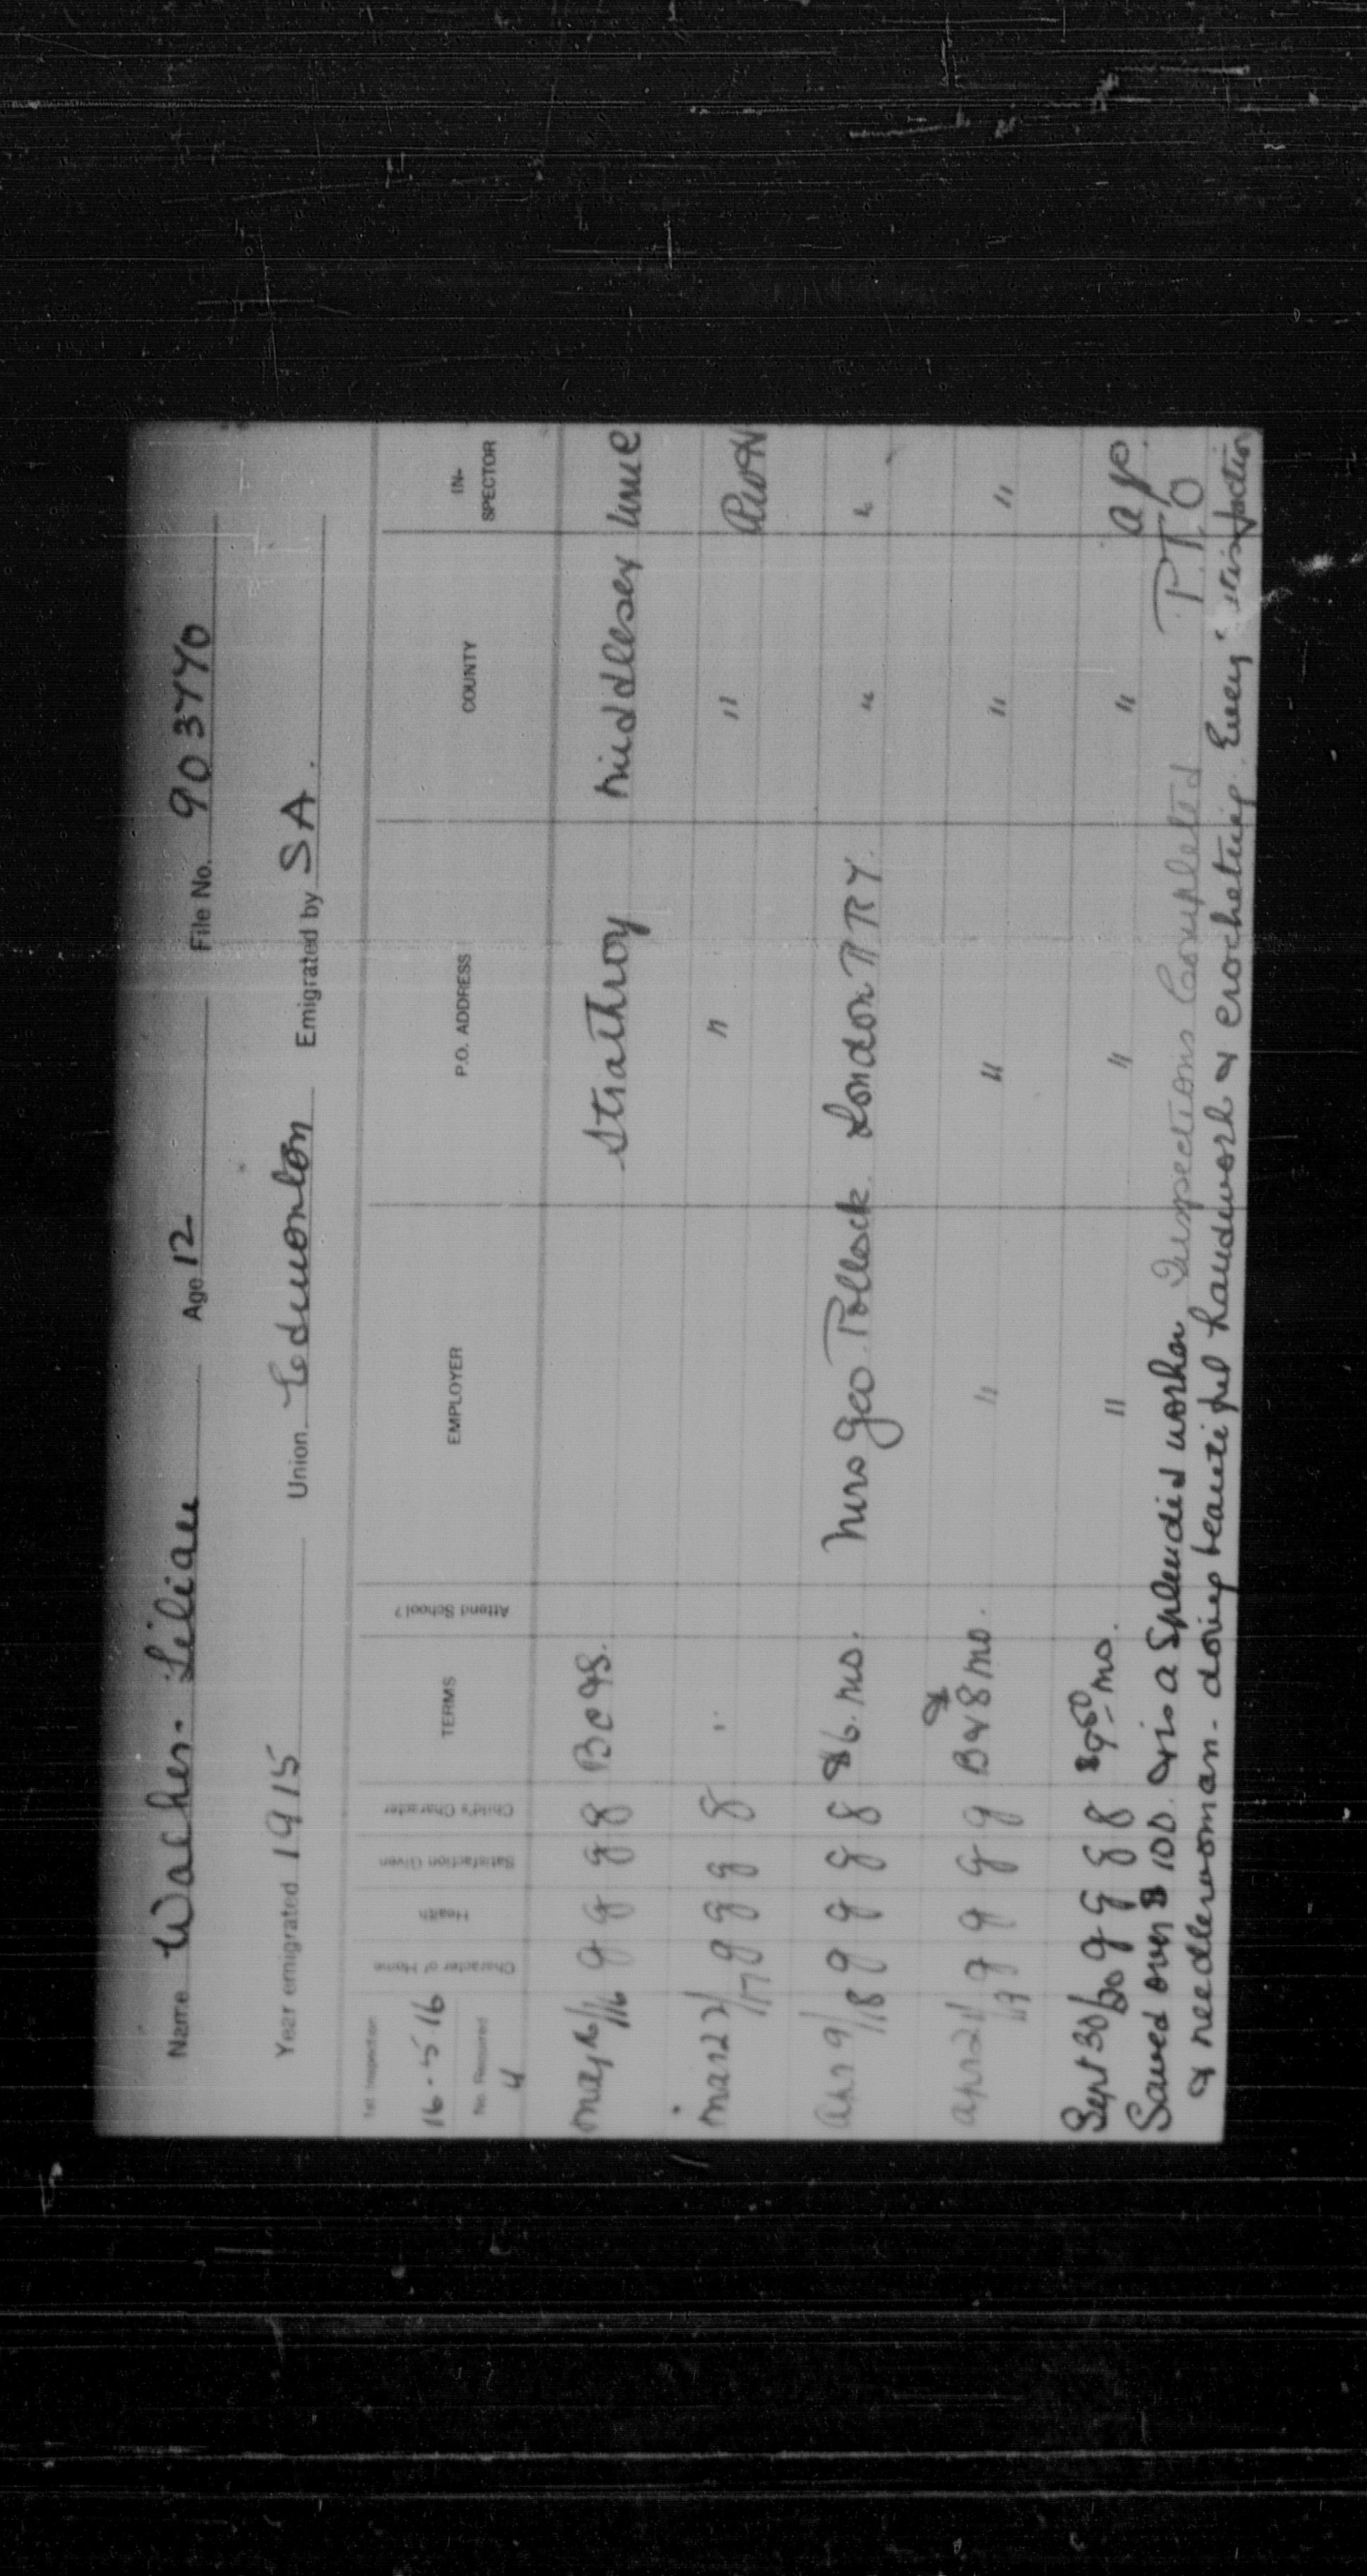 Name Walker - Lilian Age 12 File No. 903770
Year emigrated 1915 Union Edmonton Emigrated by S A.
1st Inspection 16-5-16 No. Required 4 Character of Home Health Satisfaction Given Child's Character TERMS Attend School? EMPLOYER P.O. ADDRESS COUNTY IN-SPECTOR
May 16/16 g g g g B C & S. Strathroy Middlesex
Mar 22/17 g g g g " " "
Apr 9/18 g g g g $6. mo. Mrs Geo. Pollock London RR 7. " "
Apr 21/19 g g g g B & $8 mo. " " " "
Sept 30/20 g g g g mo. " " "
Saved over $100. & is a Splendid worker Inspections Completed P.T.O
& needlewoman - doing beautiful handwork & crocheting. Every satisfaction